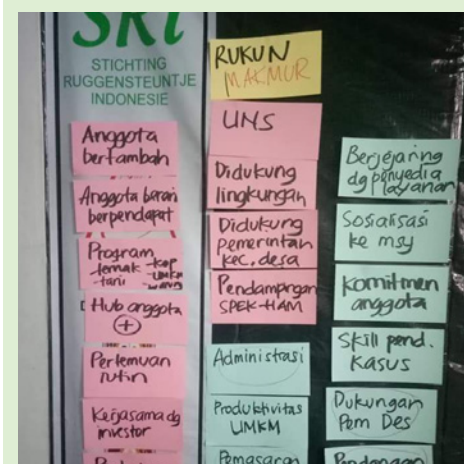 SRI
STICHTING
RUGGENSTEUNTJE
INDONESIE
Anggota
bertambah
Anggota berani
berpendapat
Program
ternak
tani
Hub anggota
+
Pertemuan
rutin
Kerjasama dg
investor
RUKUN
MAKMUR
UNS
Didukung
lingkungan
Didukung
pemerintah
kec. desa
Pendampingan
SPEK-HAM
Administrasi
Produktivitas
UMKM
Pemasaran
Berjejaring
dg penyedia
layanan
Sosialisasi
ke msy
Komitmen
anggota
Skill pend.
Kasus
Dukungan
Pem Des